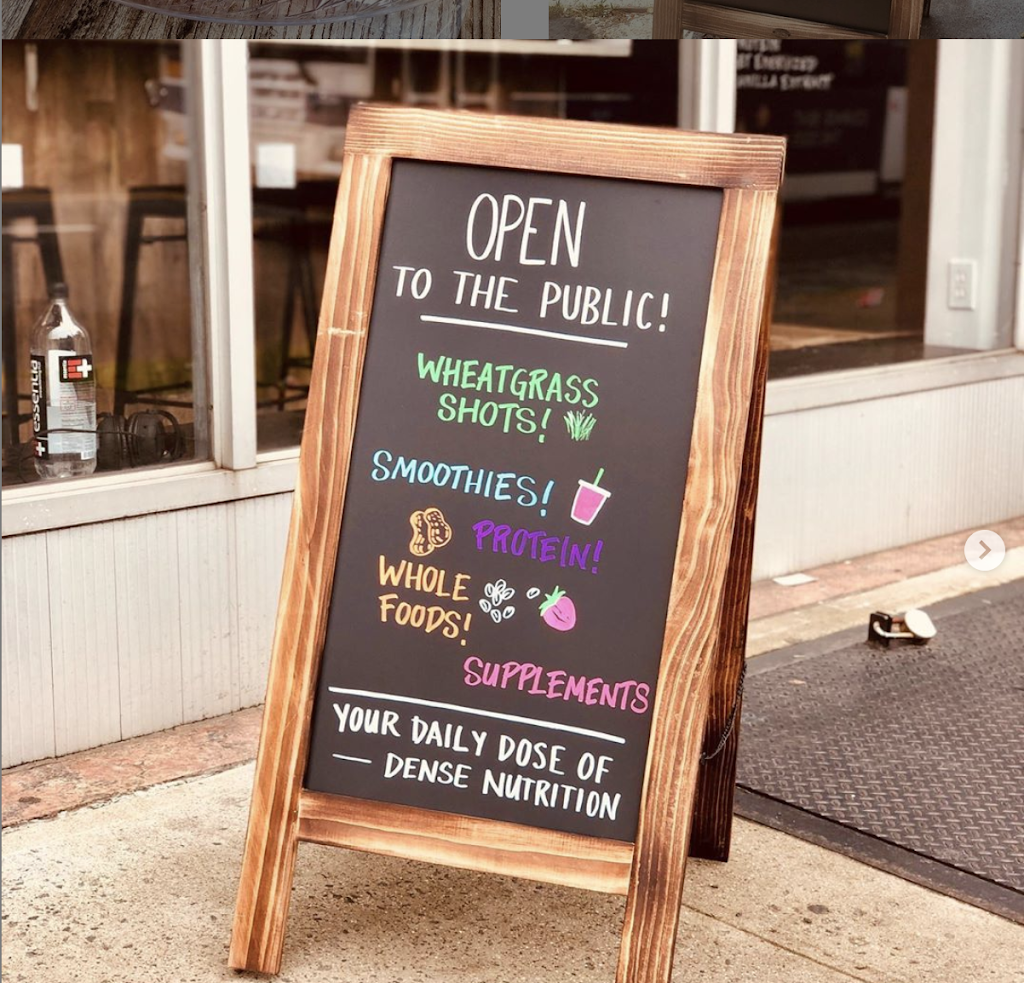 OPEN
TO THE PUBLIC!
WHEATGRASS
SHOTS!
SMOOTHIES!
PROTEIN!
WHOLE
FOODS!
SUPPLEMENTS
YOUR DAILY DOSE OF
— DENSE NUTRITION
essentia